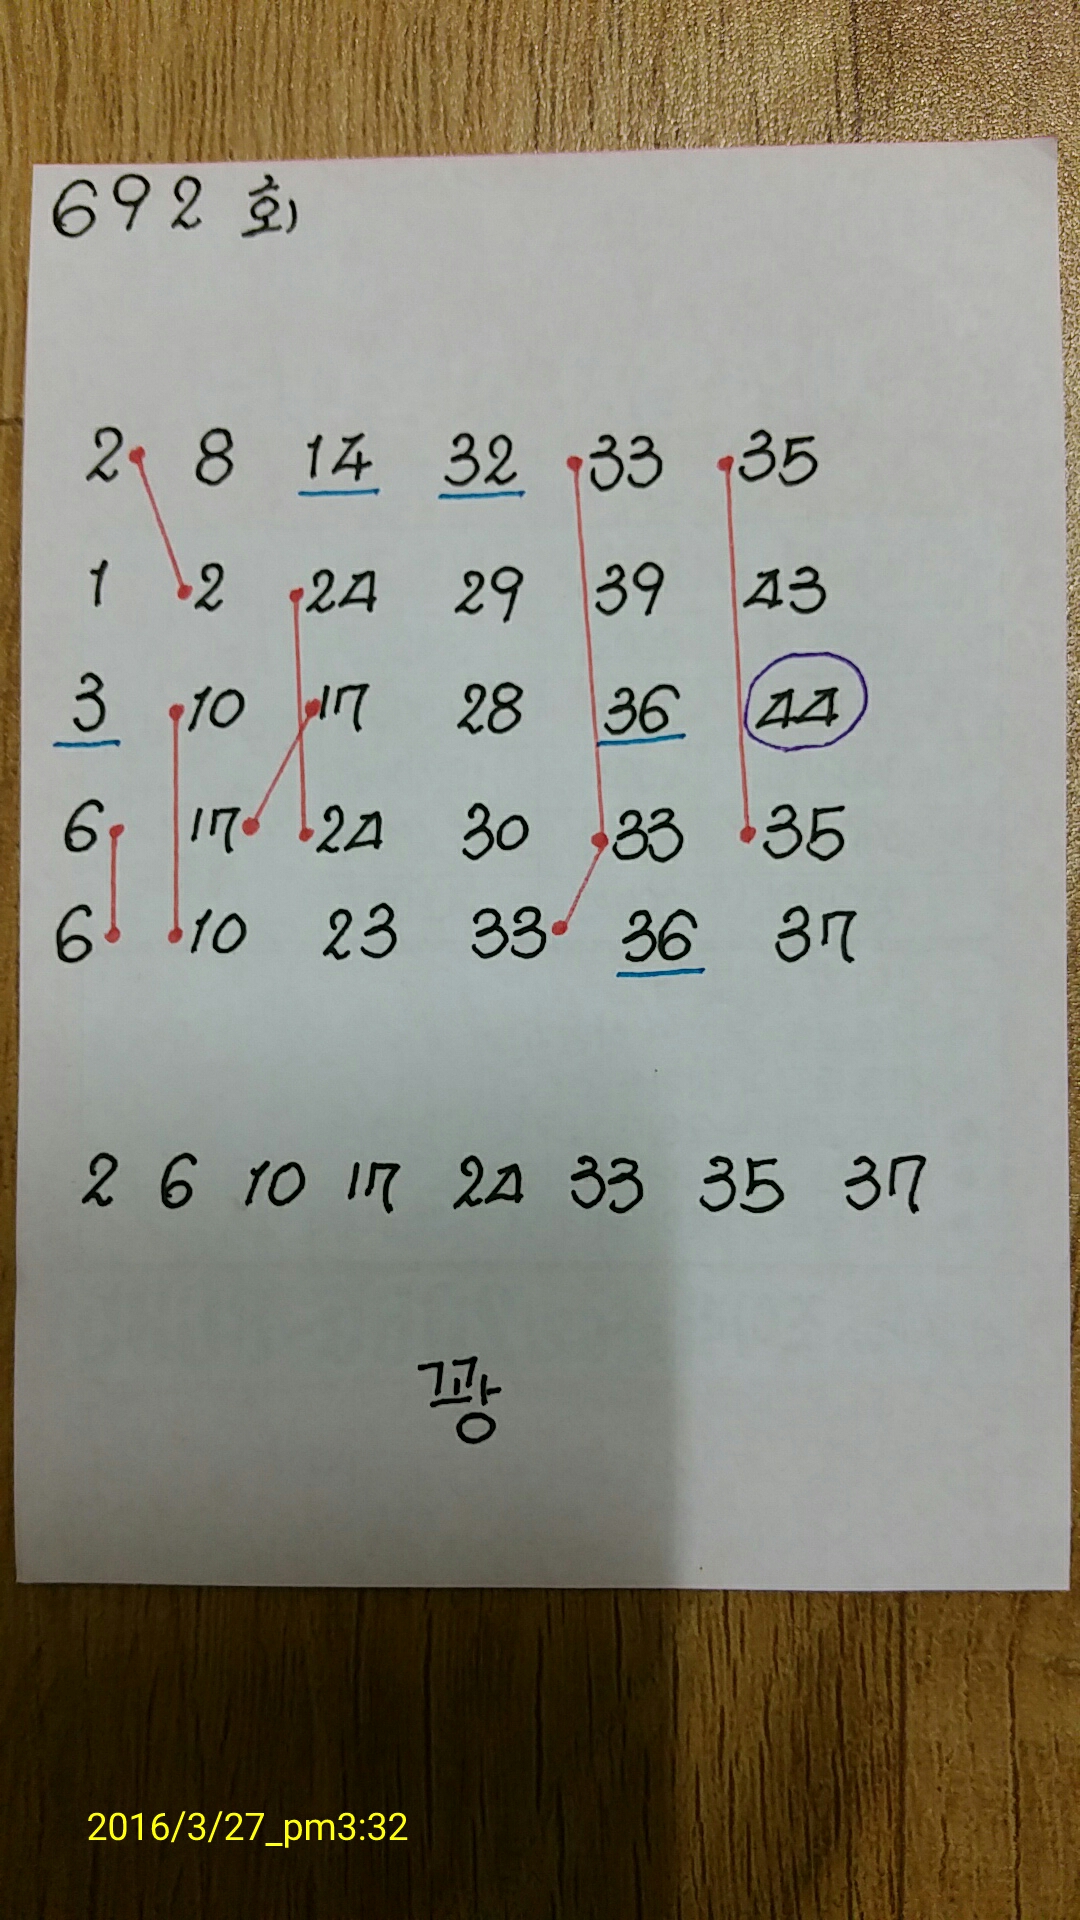 692 회
2 8 14 32 33 35
1 2 24 29 39 43
3 10 17 28 36 44
6 17 24 30 33 35
6 10 23 33 36 37
2 6 10 17 24 33 35 37
꽝
2016/3/27_pm3:32